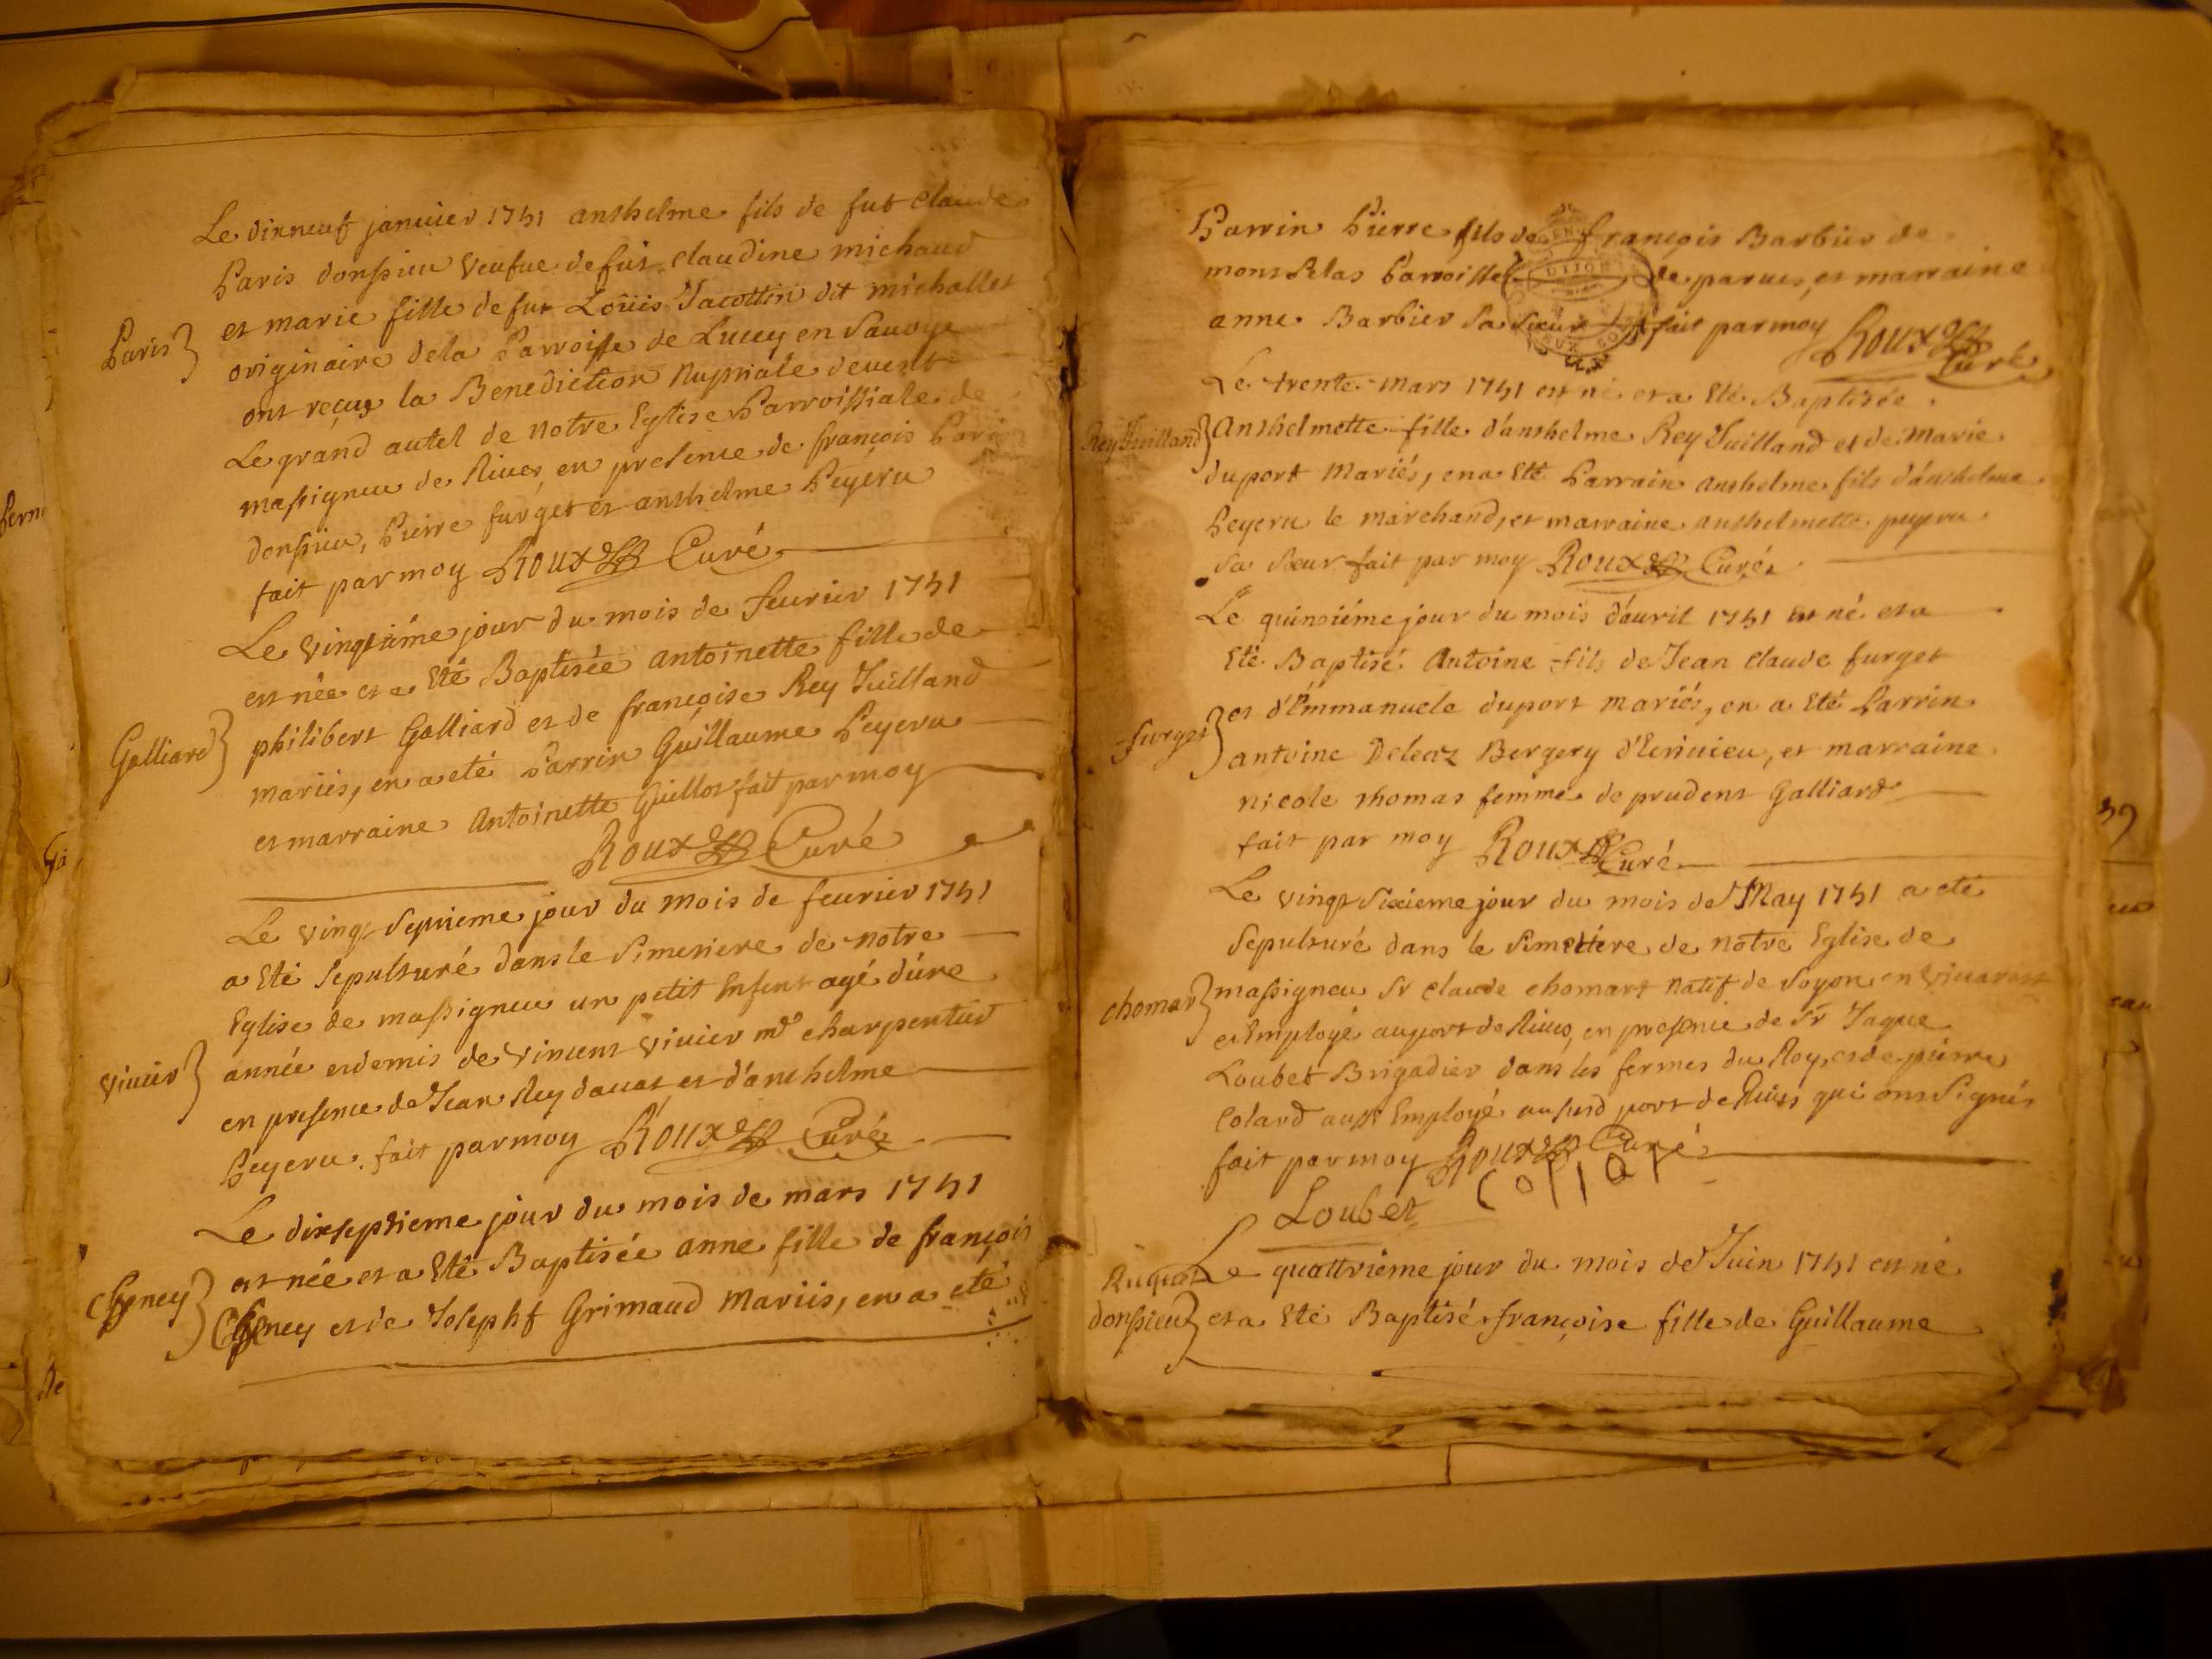 Le dixneuf januier 1741 anthelme fils de fut Claude
Paris donssieu Veufue de fut Claudine michaud
et marie fille de fut Loüis Jacottin dit michallet
Paris
originaire dela Parroisse de Lucey en Sauoye
ont reçus la Benediction Nuptiale devent
Le grand autel de notre Eglise Parroissiale de
massigneu de Riues, en presence de françois Paris
donssieu, Pierre furget et anthelme Peyeru
fait par moy Roux Curé
Le vingtième jour du mois de feurier 1741
est née et a Eté Baptisée antoinette fille de
Galliard
philibert Galliard et de françoise Rey Juilland
mariés, en a eté Parrin Guillaume Peyeru
et marraine Antoinette Guillot fait par moy
Roux Curé
Le vingt Septieme jour du mois de feurier 1741
a Eté Sepulturé dans le Simetiere de notre
Eglise de massigneu un petit Enfent agé d'une
Viuier
année et demis de Vincent Viuier md charpentier
en presence de Jean Rey dauat et d'anthelme
Peyeru. fait par moy Roux Curé
Le dixseptieme jour du mois de mars 1741
est née et a Eté Baptisée anne fille de françois
et de Josephf Grimaud Mariés, en a eté
Parrin Pierre fils de françois Barbier de
Parroisse de parues, et marraine
anne Barbier Sa Sœur fait par moy Roux
Curé
Le trente mars 1741 est né et a Eté Baptisée
Rey Juilland
Anthelmette fille d'anthelme Rey Juilland et de Marie
duport Mariés, en a Eté Parrain anthelme fils d'anthelme
Peyeru le marchand, et marraine anthelmette peyeru
Sa Sœur fait par moy Roux Curé
Le quinsiéme jour du mois d'auril 1741 est né et a
Eté Baptisé Antoine fils de Jean Claude furget
furget
et d'Emmanuele duport Mariés, en a Eté Parrin
antoine Deleaz Bergery et marraine
Nicole thomas femme de prudent Galliard
fait par moy Roux Curé
Le vingt Sixieme jour du mois de May 1741 a eté
Sepulturé dans le Simetiére de Nôtre Eglise de
chomar
massigneu Sr Claude chomart Natif de Soyon en Viuarest
et Employé au port de Riues, en presence de Sr Jaque
Loubet Brigadier dans les fermes du Roy, et de pierre
Colard aussi Employé au susd port de Riues qui ont Signés
fait par moy Roux Curé
Loubet
Le quattriéme jour du mois de Juin 1741 est né
donssieu
et a Eté Baptisé françoise fille de Guillaume